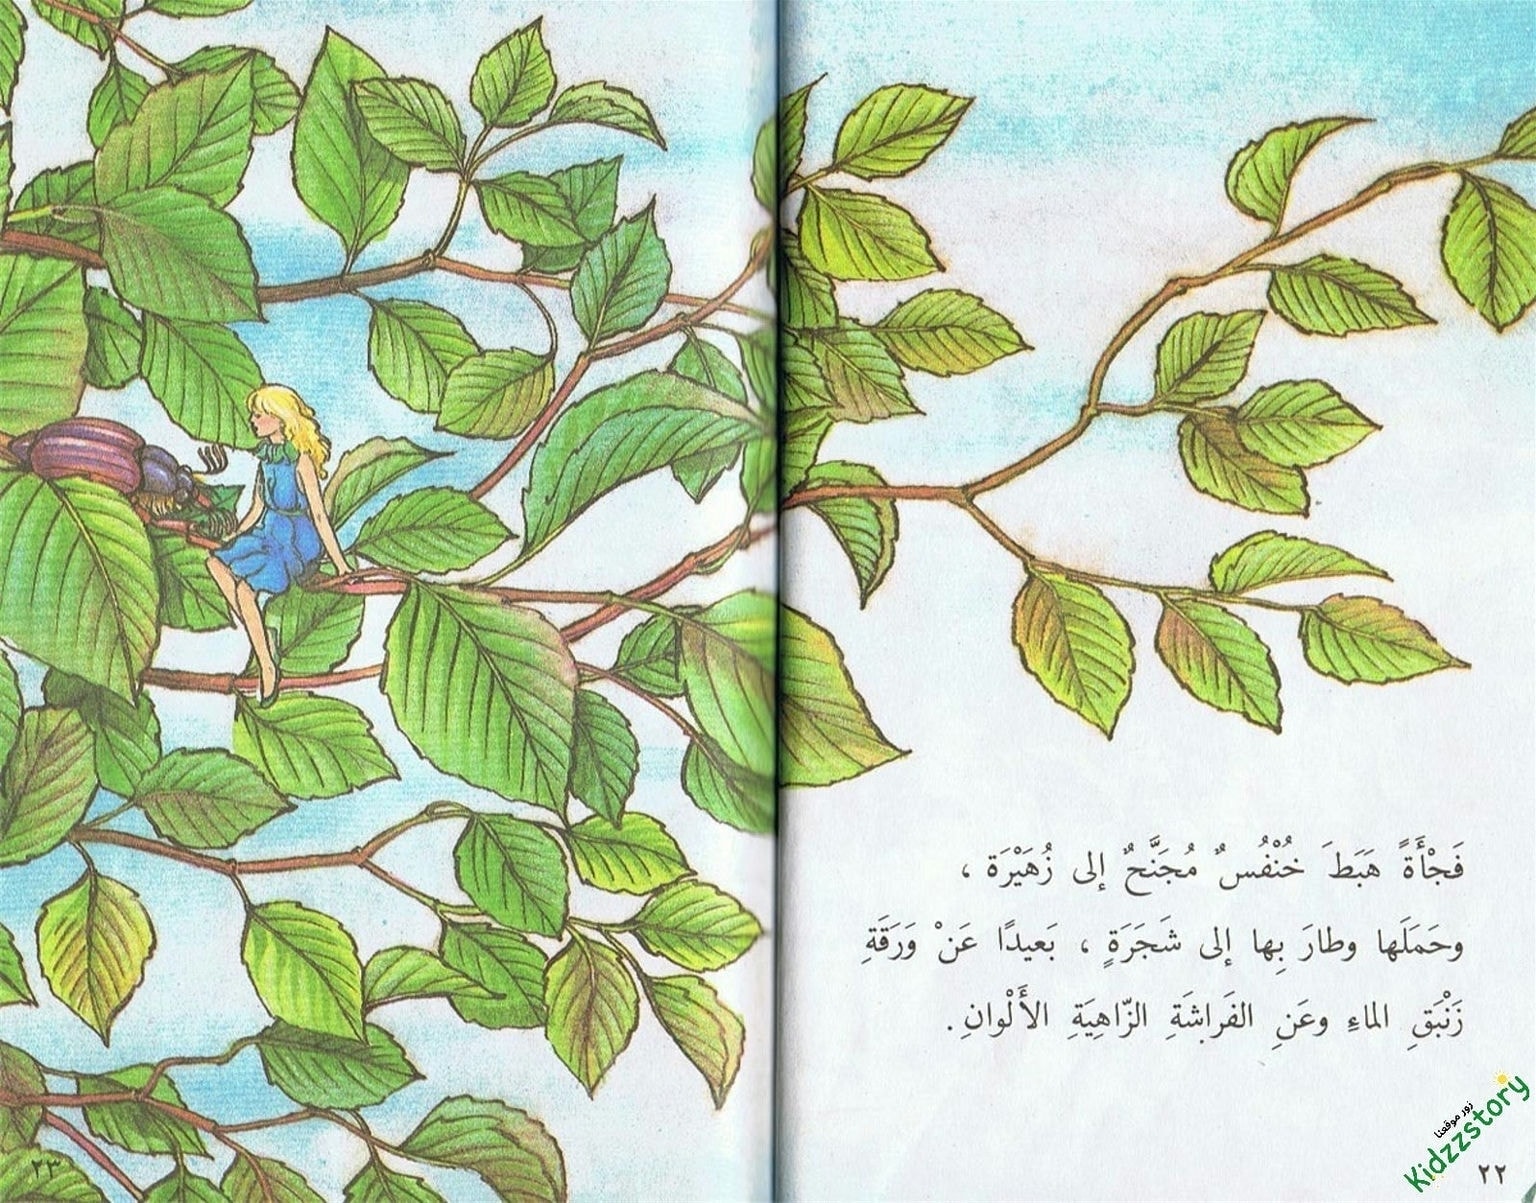 فَجْأَةً هَبَطَ خُنْفُسٌ مُجَنَّحٌ إلى زُهَيْرَة ،
وحَمَلَها وطارَ بِها إلى شَجَرَةٍ ، بَعيدًا عَنْ وَرَقَةِ
زَنْبَقِ الماءِ وعَنِ الفَراشَةِ الزّاهِيَةِ الأَلْوانِ.
زور موقعنا
Kidzzstory
٢٢
٢٣